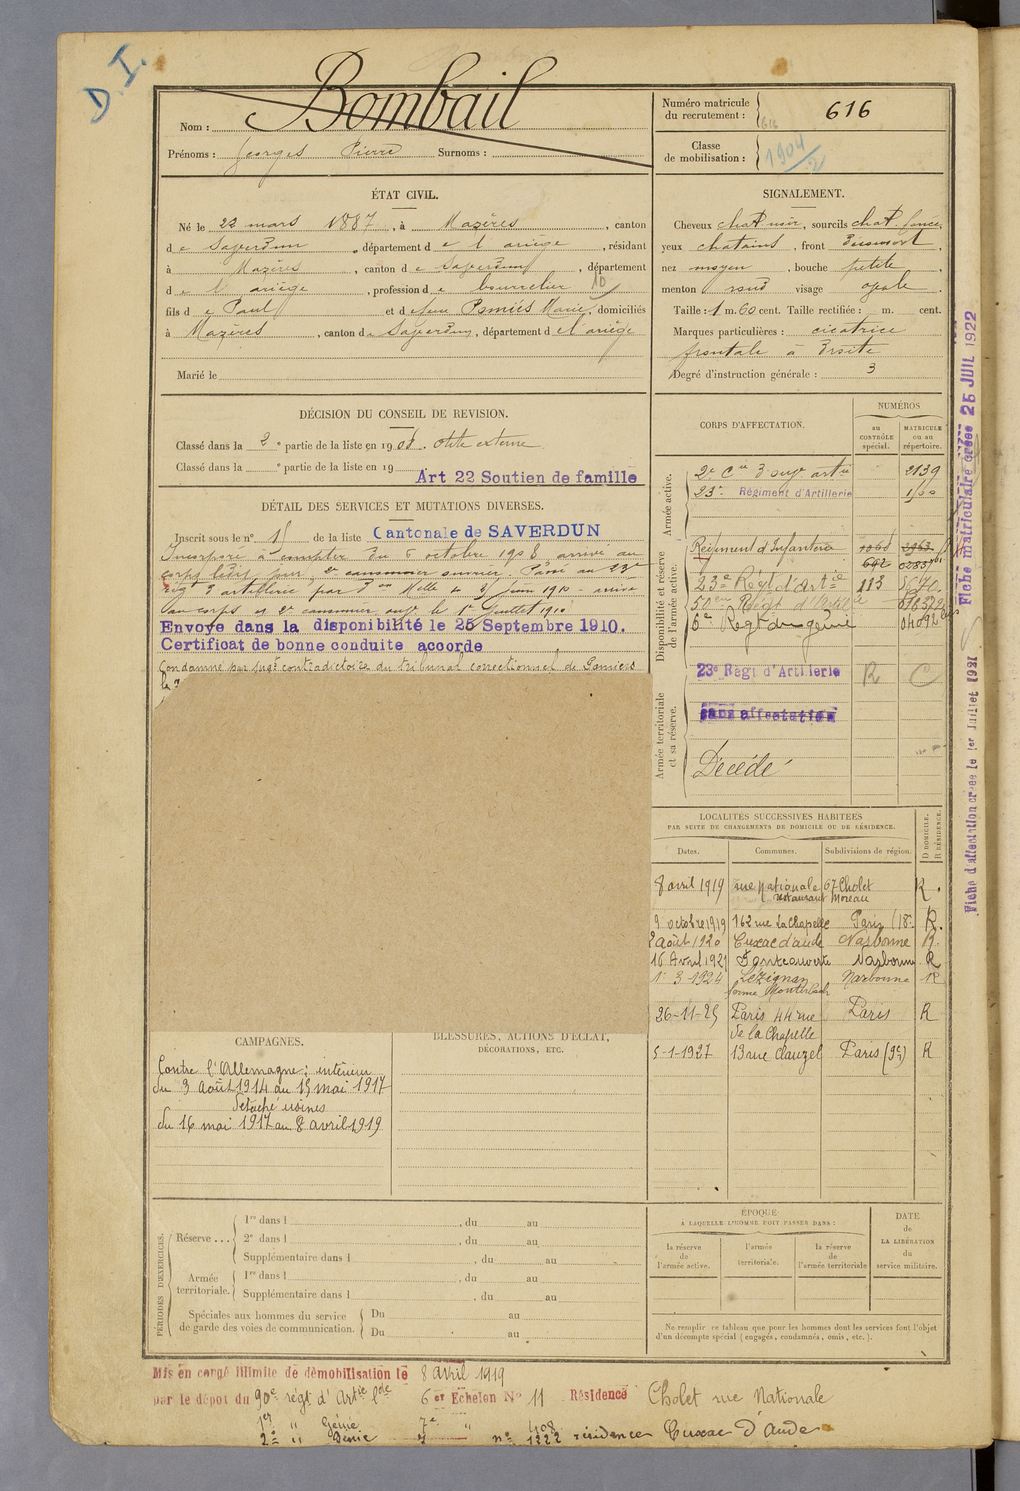 D. I.
Nom : Bombail
Prénoms : Georges Pierre Surnoms :
Numéro matricule du recrutement : 616
616
Classe de mobilisation : 1904
2
ÉTAT CIVIL.
Né le 22 mars 1887, à Mazères, canton
de Saverdun, département de l'ariège, résidant
à Mazères, canton de Saverdun, département
de l'ariège, profession de bourrelier 10
fils de Paul et de feue Pamiés Marie, domiciliés
à Mazères, canton de Saverdun, département de l'ariège
Marié le
SIGNALEMENT.
Cheveux chat noir, sourcils chat foncé,
yeux chatains, front
nez moyen, bouche petite,
menton rond visage ovale.
Taille : 1 m. 60 cent. Taille rectifiée : m. cent.
Marques particulières : cicatrice
frontale à droite
Degré d'instruction générale : 3
DÉCISION DU CONSEIL DE REVISION.
Classé dans la 2e partie de la liste en 1908. otite externe
Classé dans la e partie de la liste en 19
Art 22 Soutien de famille
DÉTAIL DES SERVICES ET MUTATIONS DIVERSES.
Inscrit sous le n° 15 de la liste Cantonale de SAVERDUN
Incorporé à compter du 6 octobre 1908 arrivé au
corps led. jour, 2e canonnier servier. Passé au 23e
rég d'artillerie par Don Melle le 5 juin 1910 - arrivé
au corps et 2e canonnier le 1er Juillet 1910
Envoyé dans la disponibilité le 25 Septembre 1910.
Certificat de bonne conduite accordé
Condamné par jugt contradictoire du tribunal correctionnel de Pamiers
CORPS D'AFFECTATION.
NUMÉROS
au CONTRÔLE spécial.
MATRICULE ou au répertoire.
Armée active.
2e Cie d'ouv artie 2139
23e Régiment d'Artillerie 1500
Disponibilité et réserve de l'armée active.
Régiment d'Infanterie 1060 2963
642 0283
23e Régt d'Artie 113
50eme Régt d'Artillie
6e Régt du génie 04092
Armée territoriale et sa réserve.
23e Régt d'Artillerie R C
sans affectation
Décédé
LOCALITÉS SUCCESSIVES HABITÉES
PAR SUITE DE CHANGEMENTS DE DOMICILE OU DE RÉSIDENCE.
Dates. Communes. Subdivisions de région. D DOMICILE. R RÉSIDENCE.
8 avril 1919 rue Nationale 67 Cholet R.
restaurant Moreau
9 octobre 1919 162 rue La Chapelle Paris (18e R.
2 août 1920 Cuxac d'aude Narbonne R.
16 Avril 1921 Fontcouverte Narbonne R
1-3-1924 Lézignan Narbonne R
ferme Montrabech
26-11-25 Paris 44 rue Paris R
de la Chapelle
5-1-1927 13 rue Clauzel Paris (9e) R
CAMPAGNES.
Contre l'Allemagne : intérieur
du 3 août 1914 au 15 mai 1917
Détaché usines
du 16 mai 1917 au 8 avril 1919
BLESSURES, ACTIONS D'ÉCLAT,
DÉCORATIONS, ETC.
PÉRIODES D'EXERCICES.
Réserve ...
1re dans l , du au
2e dans l , du au
Supplémentaire dans l , du au
Armée territoriale.
1re dans l , du au
Supplémentaire dans l , du au
Spéciales aux hommes du service de garde des voies de communication.
Du au
Du au
ÉPOQUE
À LAQUELLE L'HOMME DOIT PASSER DANS :
la réserve de l'armée active.
l'armée territoriale.
la réserve de l'armée territoriale
DATE de LA LIBÉRATION du service militaire.
Ne remplir ce tableau que pour les hommes dont les services font l'objet
d'un décompte spécial ( engagés, condamnés, omis, etc. ).
Mis en congé illimité de démobilisation le 8 avril 1919
par le dépôt du 90e régt d'Artie lde 6er Echelon N° 11 Résidence Cholet rue Nationale
1er " Génie 7e " 408
2e " Génie n° 1222 résidence Cuxac d'Aude
Fiche matriculaire créée 25 JUIL 1922
Fiche d'affectation créée le 1er Juillet 1921